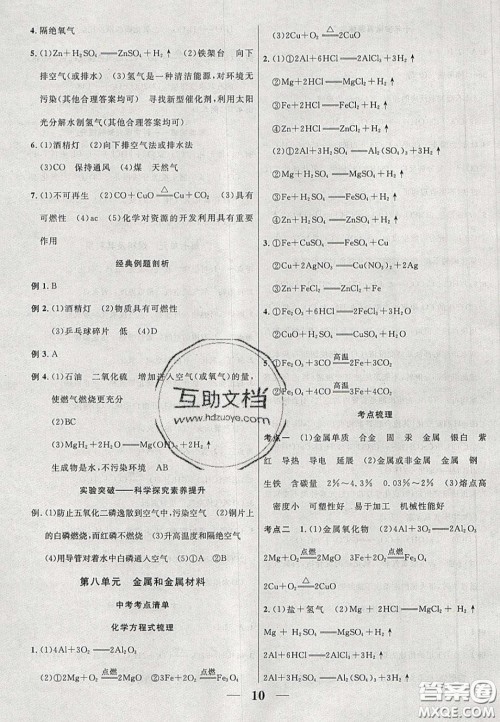 4. 隔绝氧气
5. (1)Zn+H₂SO₄══ZnSO₄+H₂↑ (2)铁架台 向下
排空气法(或排水) (3)氢气是一种清洁能源,对环境无
污染(其他合理答案均可) 寻找新型催化剂,利用太阳
光分解水制氢气(其他合理答案均可)
6. (1)酒精灯 (2)向下排空气法或排水法
(3)CO 保持通风 (4)煤 天然气
7. (1)不可再生 (2)CO+CuO══△══Cu+CO₂ (3)具有
可燃性 (4)ac (5)化学对资源的开发利用具有重要
作用
经典例题剖析
例 1. B
例 2. (1)酒精灯 (2)物质具有可燃性
(3)乒乓球碎片 低 (4)D
例 3. A
例 4. (1)石油 二氧化硫 增加进入空气(或氧气)的量,
使燃气燃烧更充分
(2)BC
(3)MgH₂+2H₂O══Mg(OH)₂+2H₂↑
生成物是水,不污染环境 BD
实验突破——科学探究素养提升
例. (1)防止五氧化二磷逸散到空气中,污染空气 (2)白
磷燃烧,而红磷不燃烧 (3)升高温度和隔绝空气
(4)用导管对着水中白磷通入空气 (5)A B
第八单元 金属和金属材料
中考考点清单
化学方程式梳理
1. (1)4Al+3O₂══2Al₂O₃
(2)①2Mg+O₂══点燃══2MgO ②3Fe+2O₂══点燃══Fe₃O₄
(3)2Cu+O₂══△══2CuO
2. (1)①2Al+6HCl══2AlCl₃+3H₂↑
②Mg+2HCl══MgCl₂+H₂↑
③Fe+2HCl══FeCl₂+H₂↑
④Zn+2HCl══ZnCl₂+H₂↑
(2)①2Al+3H₂SO₄══Al₂(SO₄)₃+3H₂↑
②Mg+H₂SO₄══MgSO₄+H₂↑
③Fe+H₂SO₄══FeSO₄+H₂↑
④Zn+H₂SO₄══ZnSO₄+H₂↑
3. ①Fe+CuSO₄══FeSO₄+Cu
②Cu+2AgNO₃══Cu(NO₃)₂+2Ag
③Zn+FeCl₂══ZnCl₂+Fe
5. ①Fe₂O₃+3CO══高温══2Fe+3CO₂
②Fe₃O₄+4CO══高温══3Fe+4CO₂
考点梳理
考点一 (1)金属单质 合金 固 汞 金属 银白 紫
红 导热 导电 延展 (2)金属或非金属 金属 钢
生铁 含碳量 2%~4.3% 0.03%~2% (3)熔点高
密度小 可塑性好 易于加工 机械性能好
考点二 1. (1)金属氧化物 (2)4Al+3O₂══2Al₂O₃
2Mg+O₂══点燃══2MgO 3Fe+2O₂══点燃══Fe₃O₄
2Cu+O₂══△══2CuO
2. (1)盐+氢气 (2)①Mg+2HCl══MgCl₂+H₂↑
2Al+6HCl══2AlCl₃+3H₂↑
Zn+2HCl══ZnCl₂+H₂↑
Fe+2HCl══FeCl₂+H₂↑
10
互助文档
www.hdzuoye.com
答案圈
MXQE.COM